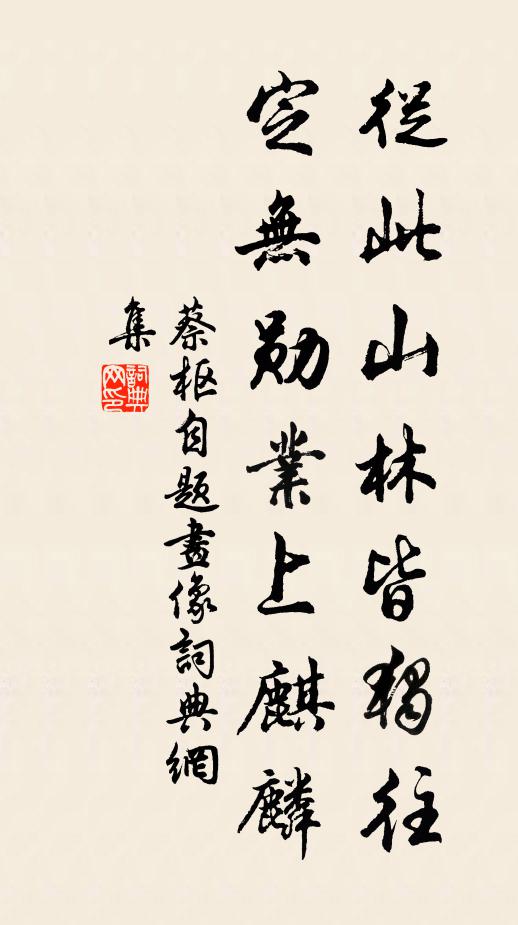 從此山林皆獨往
定無勛業上麒麟
蔡枢自题畫像詞典網
集
詞典
网印